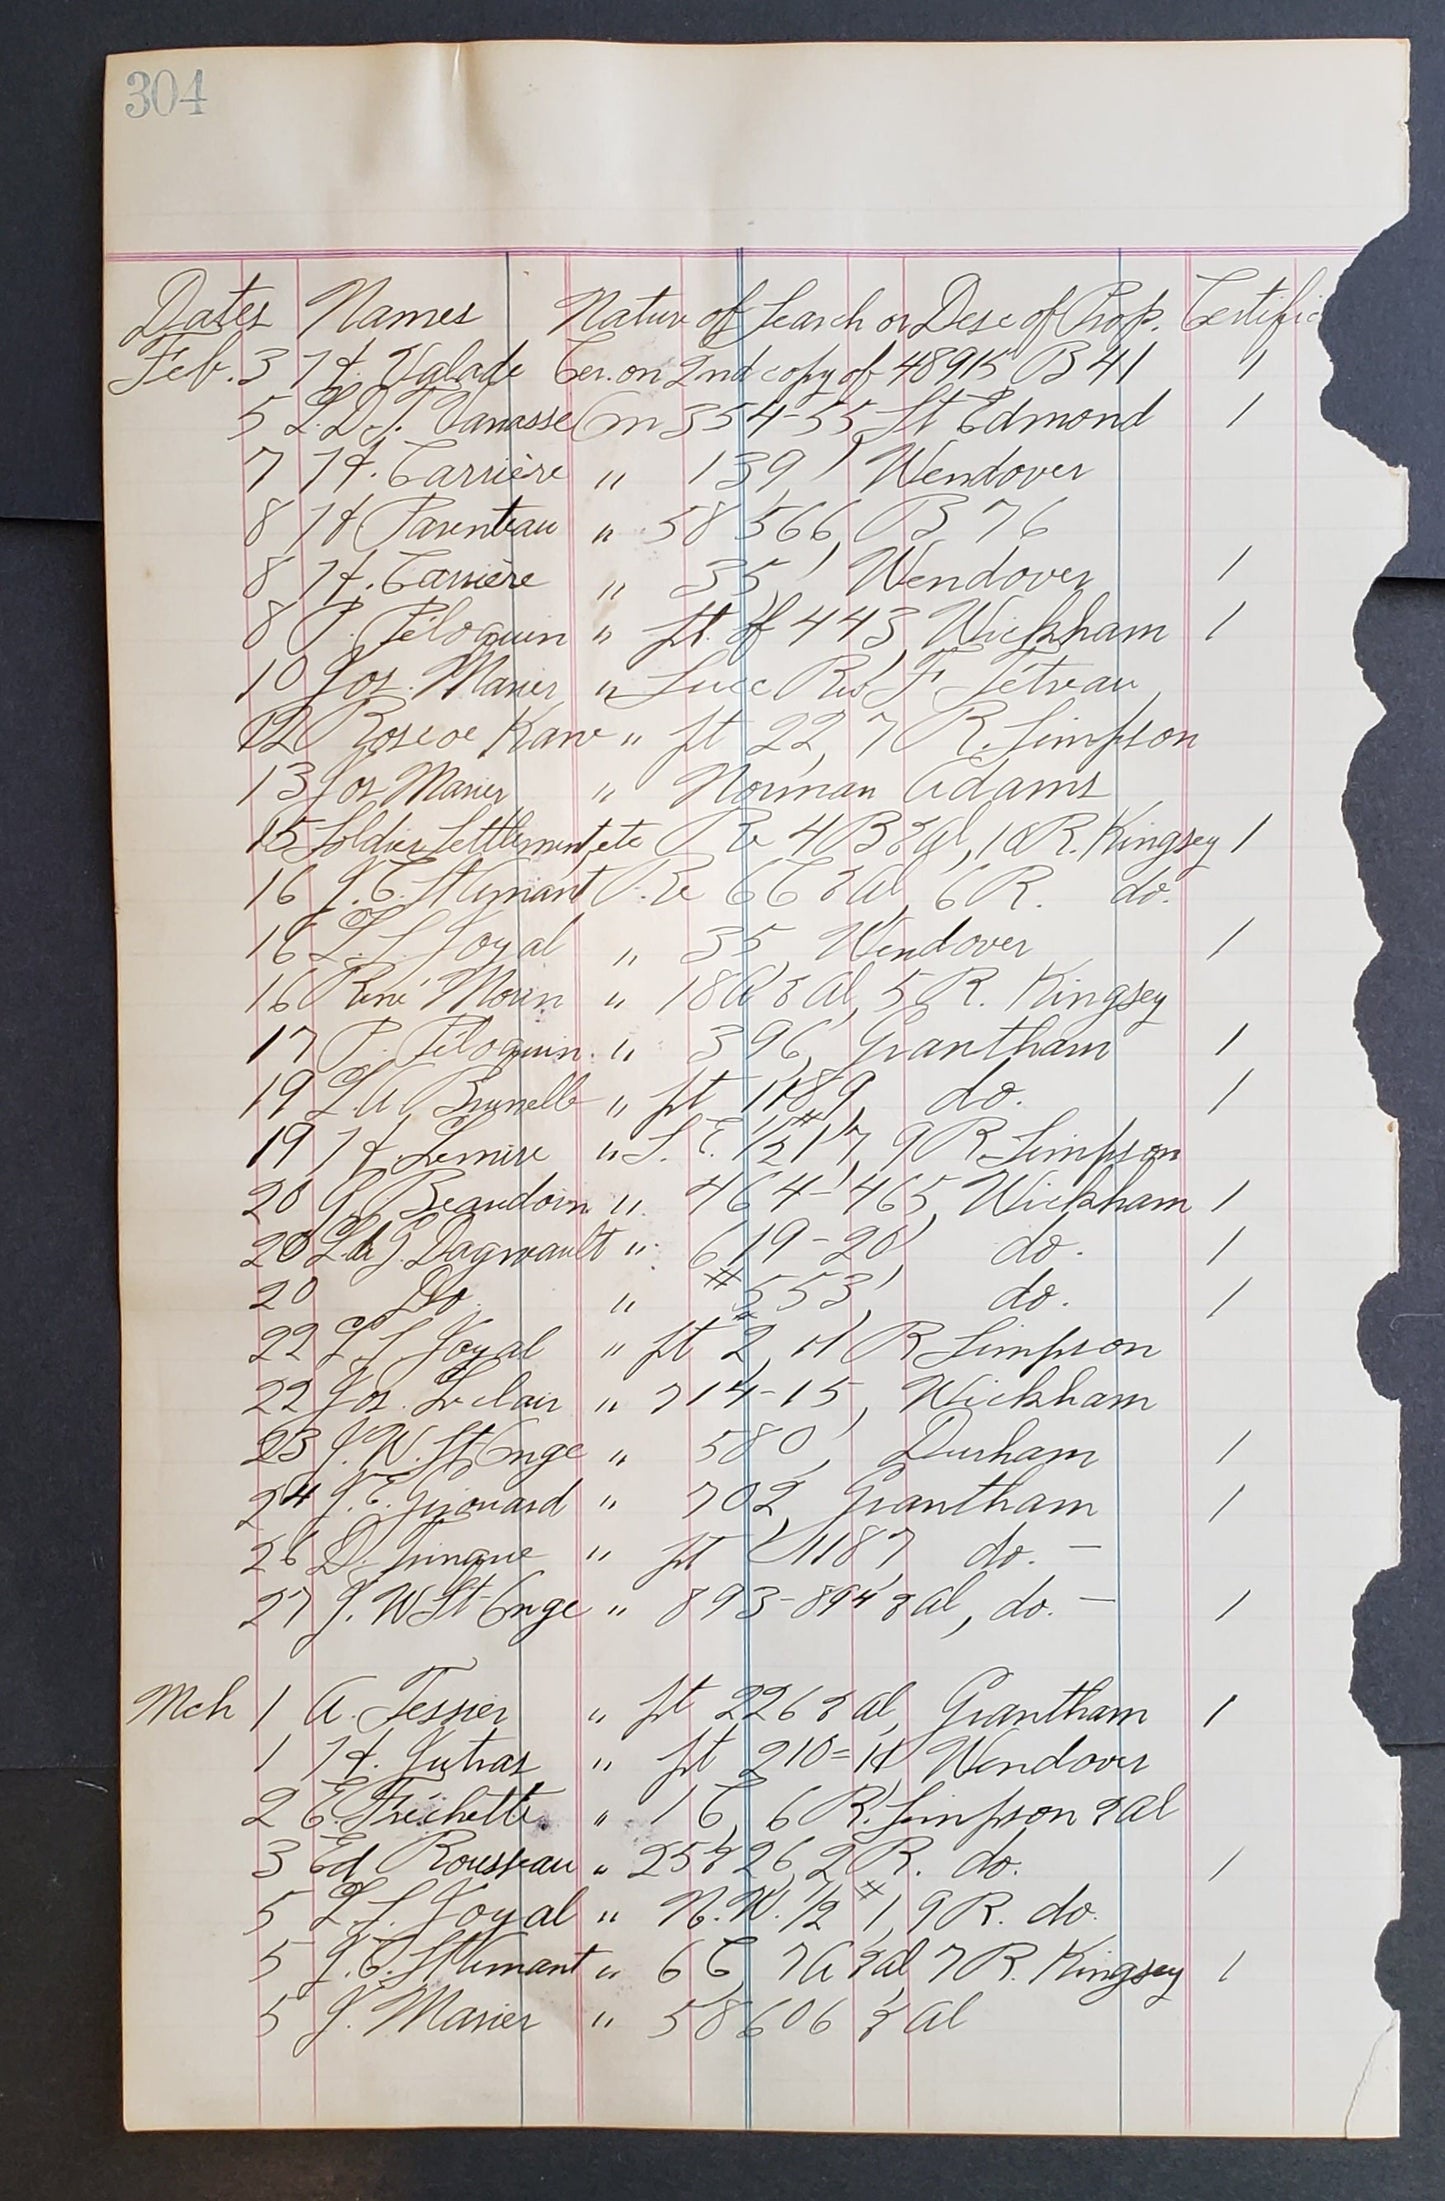 304
Dates Names Nature of Search or Desc of Prop. Certific
Feb. 3 H. Valade Cer. on 2nd copy of 48915 B 41 1
5 L.D.T. Vanasse On 354-55, St Edmond 1
7 H. Carrière " 139, Wendover
8 H Parenteau " 58566, B 76
8 H. Carrière " 35, Wendover 1
8 P. Péloquin " pt. of 443, Wickham 1
10 Jos. Marier " Succ Rev F. Tétreau
12 Roscoe Kane " pt 22, 7 R. Simpson
13 Jos Marier " Norman Adams
15 Soldier Settlement, etc Re 4B & al, 10 R. Kingsey 1
16 J.E. St Amant Re 6C & al, 6 R. do.
16 L.S. Joyal " 35, Wendover 1
16 René Morin " 18A & al, 5 R. Kingsey
17 P. Péloquin. " 396, Grantham 1
19 L A Brunelle " pt 1189, do. 1
19 H. Lemire " S. E. 1/2 #17, 9 R Simpson
20 G Beaudoin " 464-465, Wickham 1
20 Dagneault " 619-20, do. 1
20 Do. " #553, do. 1
22 L S Joyal " pt #2, 11 R Simpson
22 Jos. Leclair " 714-15, Wickham
23 J. W. St Onge " 580, Durham 1
24 J. E. Girouard " 702, Grantham 1
26 D. " pt 1187, do. —
27 J. W St-Onge " 893-894 & al, do. — 1
Mch 1 A. Tessier " pt 226 & al, Grantham 1
1 H. Jutras " pt 210=11, Wendover
2 E. Fréchette " 1 C, 6 R. Simpson & al
3 Ed Rousseau " 25 & 26, 2 R. do. 1
5 L.S. Joyal " N.W. 1/2 #1, 9 R. do.
5 J.E. St Amant " 6 C, 7A & al, 7 R. Kingsey 1
5 J. Marier " 58606 & al